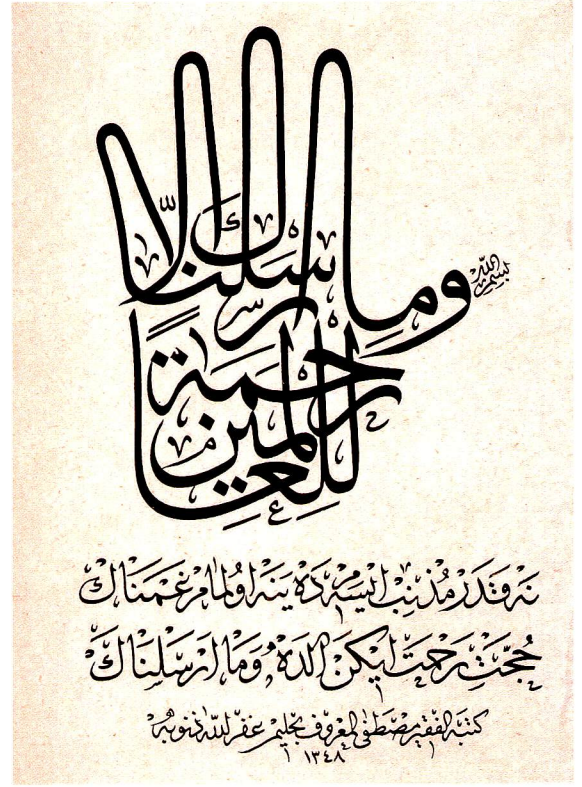 بسم الله
وما أرسلناك إلا
رحمة
للعالمين
نه قدر مذنب ايسه مده ينه اولمام غمناك
حجت رحمت ايكن الده وما ارسلناك
كتبه الفقير مصطفى المعروف بحليم غفر الله ذنوبه
١٣٤٨